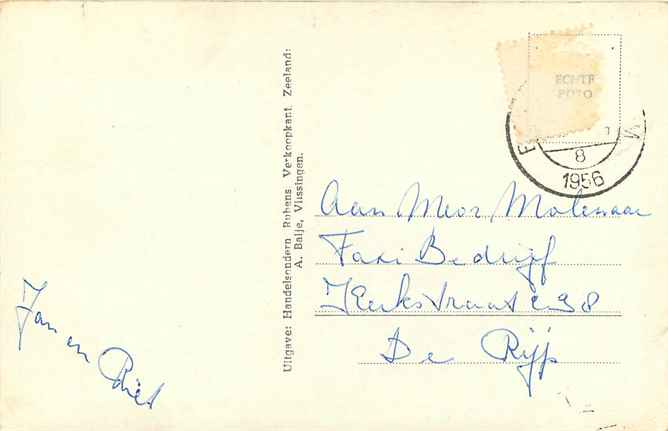 ECHTE
FOTO
8
1956
Uitgave: Handelsondern Rubens Verkoopkant. Zeeland:
A. Balje, Vlissingen.
Aan Meor Molenaar
Taxi Bedrijf
Kerkstraat 98
De Rijp
Jan en Riet